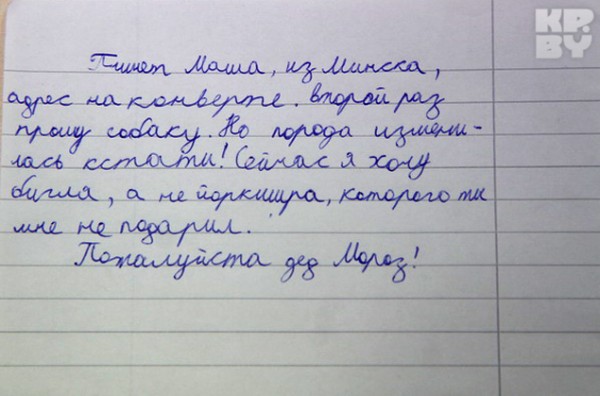 KP.
BY
Пишет Маша, из Минска,
адрес на конверте. Второй раз
прошу собаку. Но порода измени-
лась кстати! Сейчас я хочу
бигля, а не йоркшира, которого ты
мне не подарил.
Пожалуйста дед Мороз!